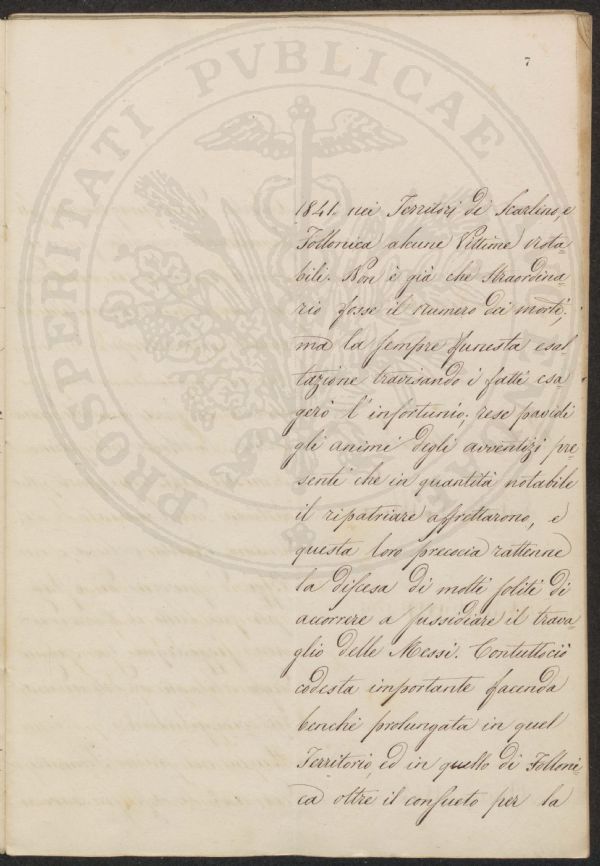 7
PROSPERITATI PVBLICAE
1841. nei Territorj di Scarlino, e
Follonica alcune Vittime nota
bili. Non è già che straordina-
rio fosse il numero dei morti;
ma la sempre funesta esal-
tazione travisando i fatti esa
gerò l'infortunio; rese pavidi
gli animi degli avventizj pre-
senti che in quantità notabile
il ripatriare affrettarono, e
questa loro precocia rattenne
la discesa di molti soliti di
accorrere a sussidiare il trava-
glio delle Messi. Contuttociò
codesta importante facenda
benchè prolungata in quel
Territorio, ed in quello di Folloni-
ca oltre il consueto per la